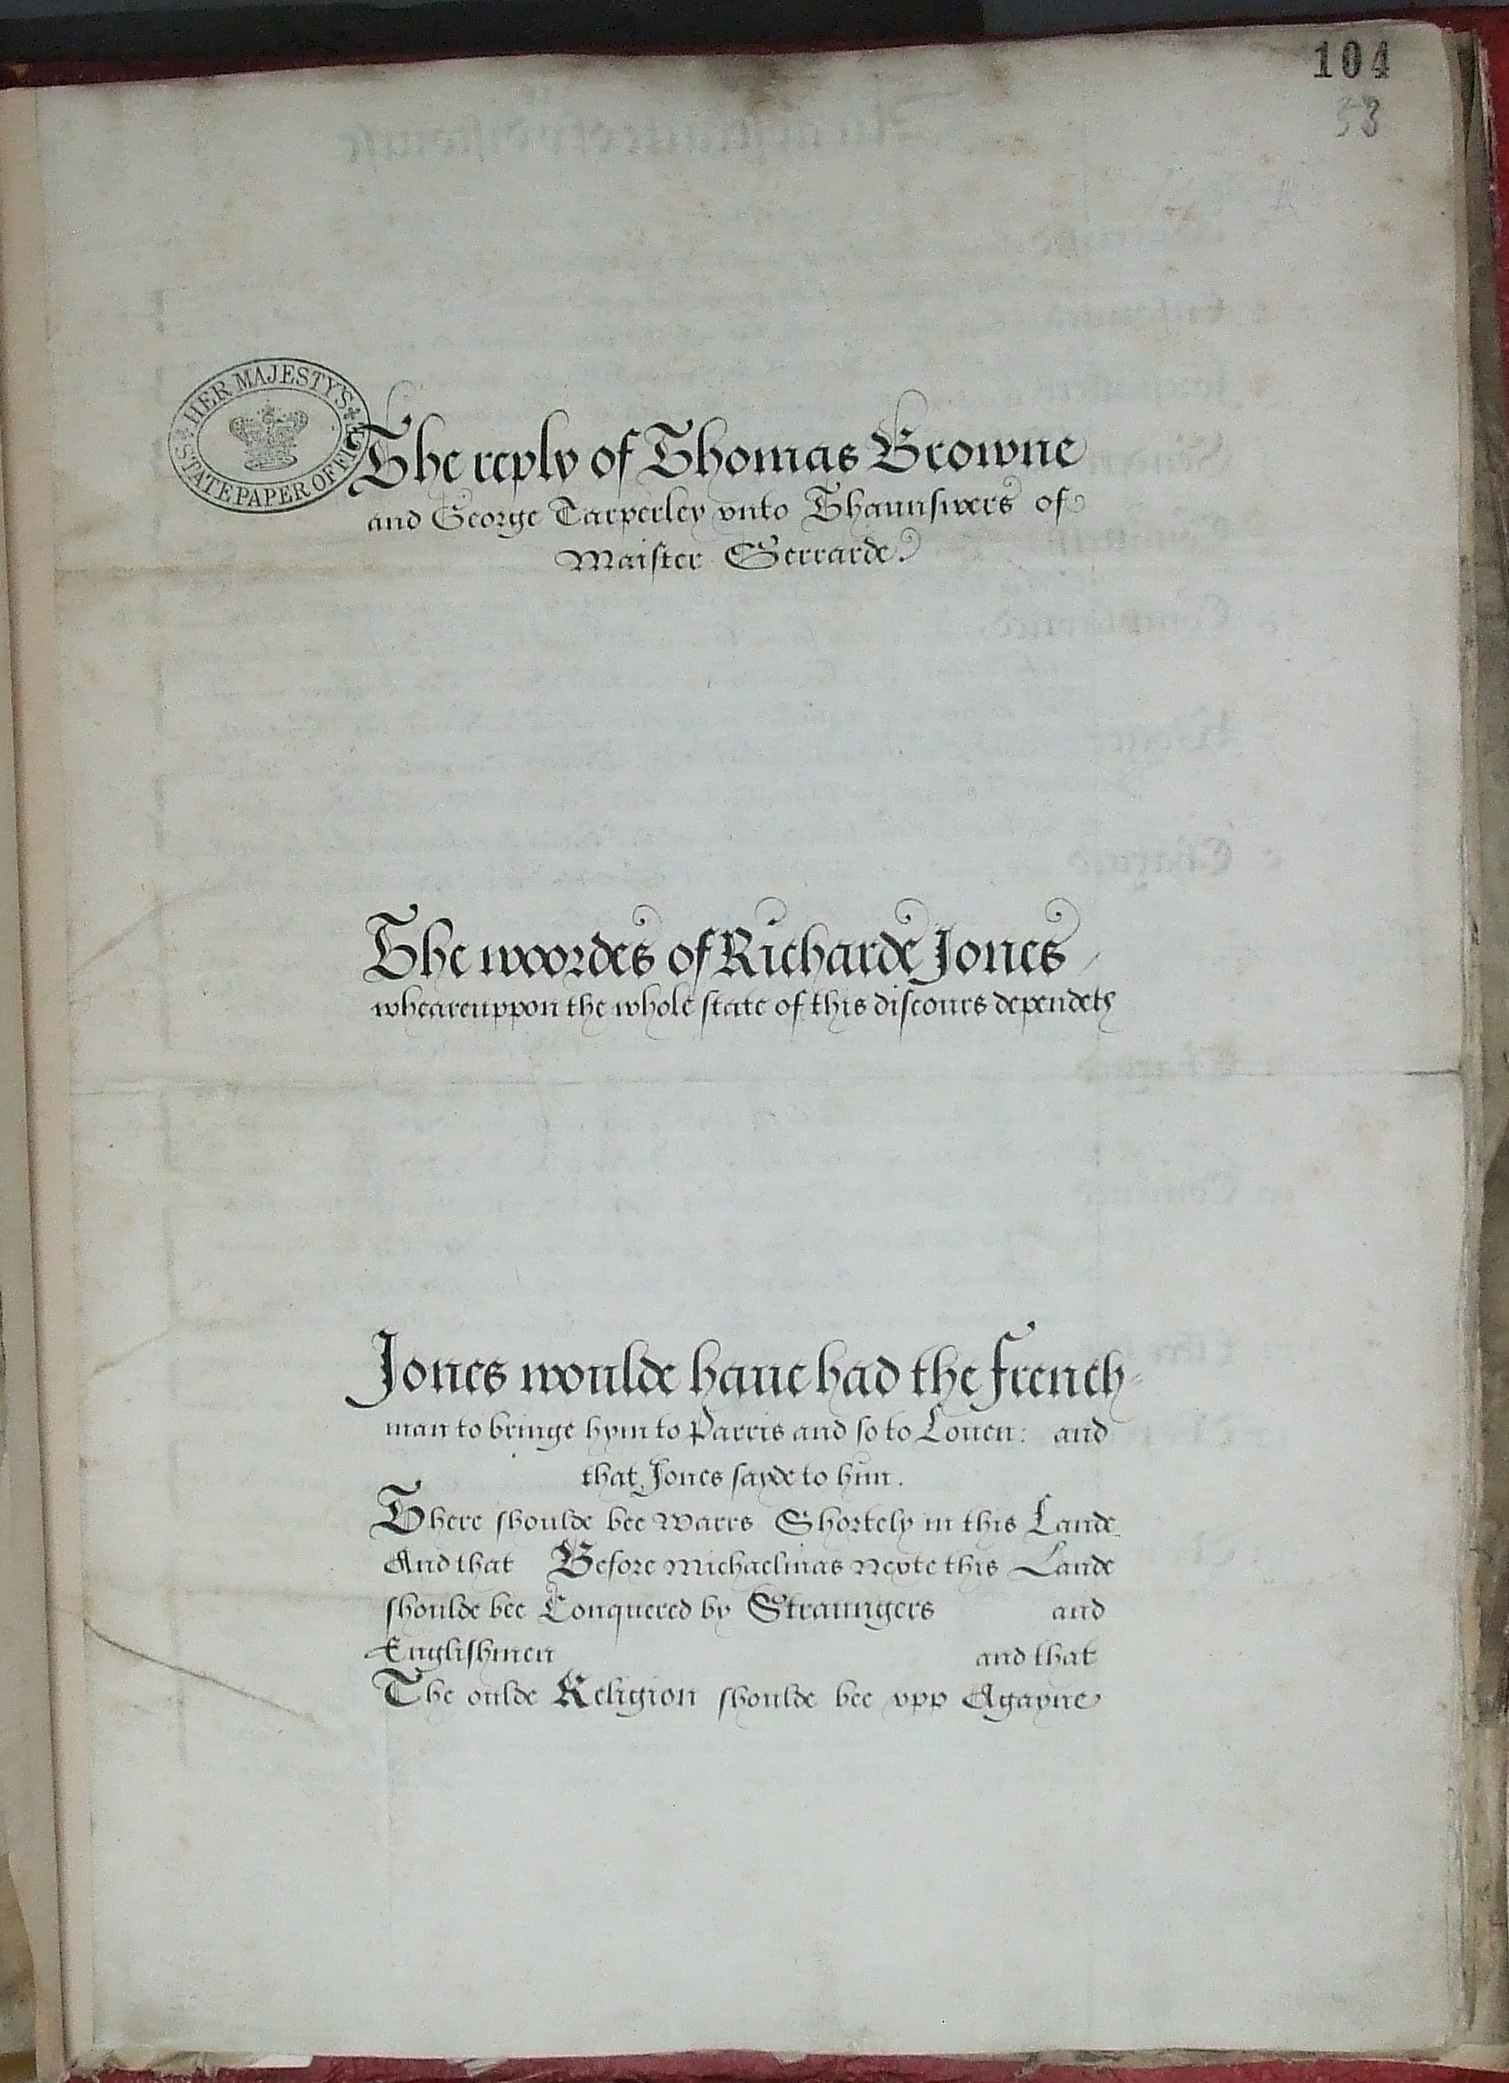 104
58
HER MAJESTY'S
STATE PAPER OFFICE
The reply of Thomas Browne
and George Tarperley vnto Thaunswers of
Maister Gerrarde
The woordes of Richarde Jones
wheareuppon the whole state of this discours dependeth
Jones woulde haue had the french
man to bringe hym to Parris and so to Louen: and
that Jones sayde to him.
There shoulde bee warrs Shortely in this Lande
And that Before Michaelmas nexte this Lande
shoulde bee Conquered by Straungers and
Englishmen and that
The oulde Religion shoulde bee vpp Agayne